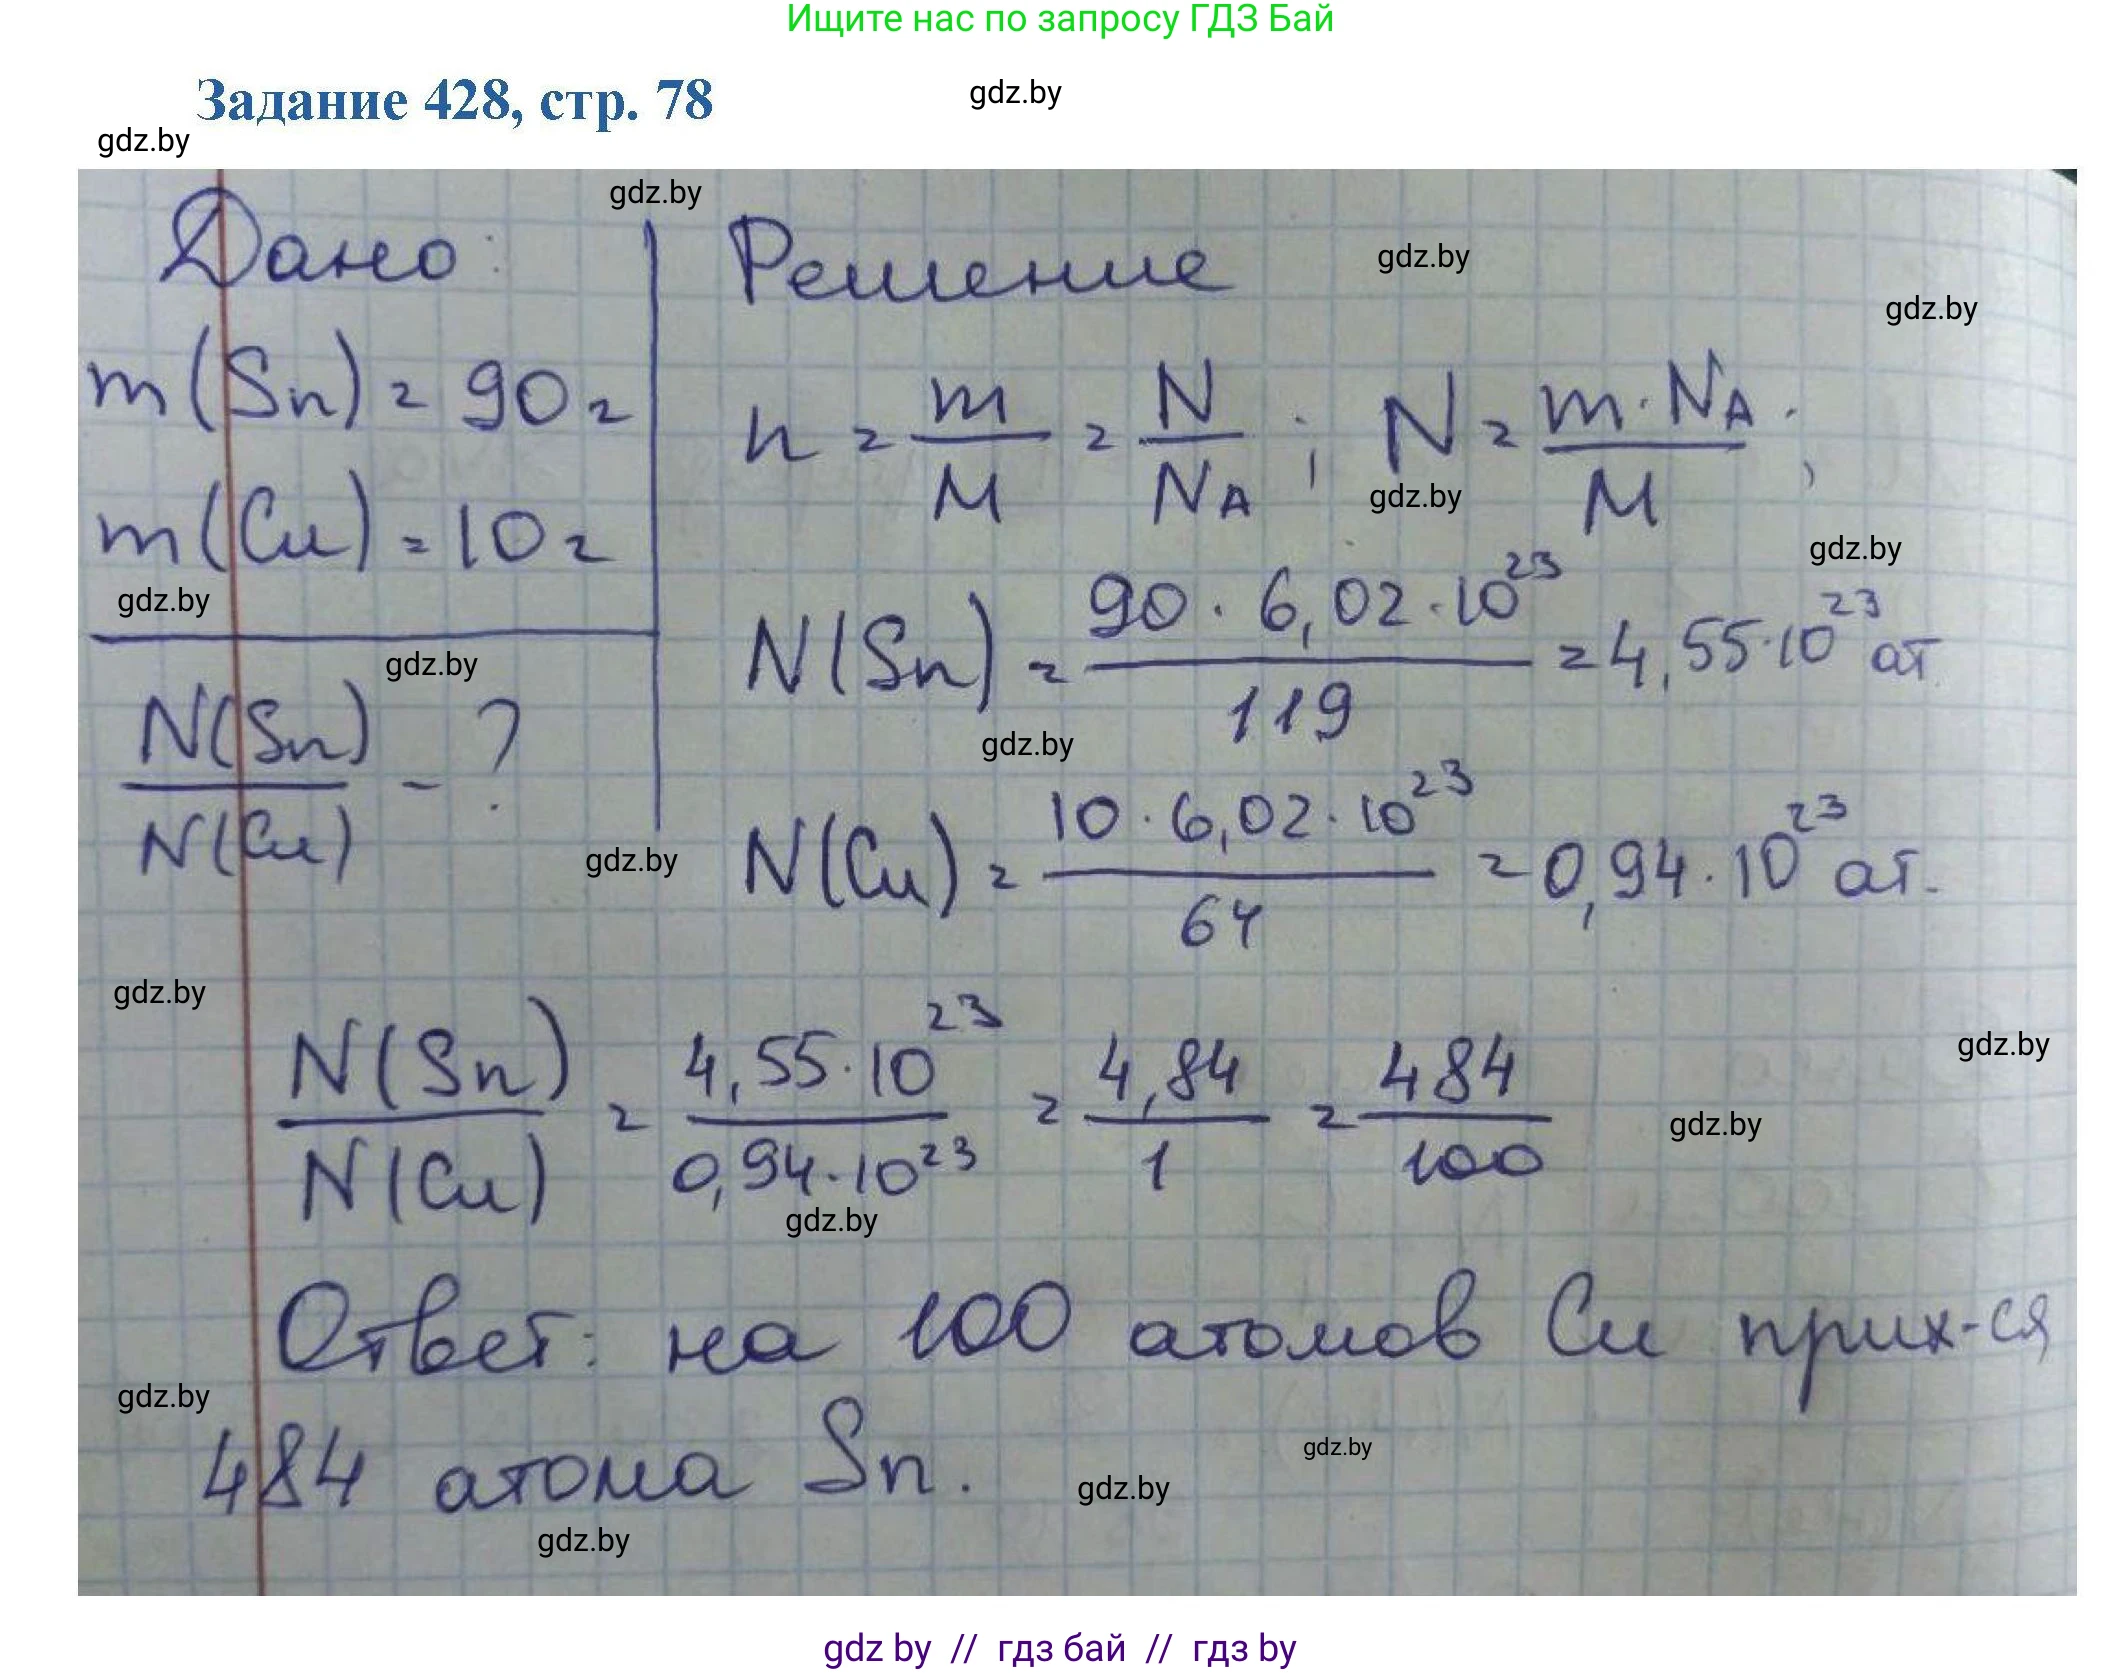 Ищите нас по запросу ГДЗ Бай
Задание 428, стр. 78
gdz.by
gdz.by
gdz.by
Дано:
Решение
gdz.by
gdz.by
m(Sn) = 90 г
n = m/M = N/NA ; N = m·NA/M ;
gdz.by
m(Cu) = 10 г
gdz.by
gdz.by
N(Sn) = 90 · 6,02 · 10^23 / 119 = 4,55·10^23 ат.
gdz.by
gdz.by
N(Sn)/N(Cu) - ?
N(Cu) = 10 · 6,02 · 10^23 / 64 = 0,94·10^23 ат.
gdz.by
gdz.by
gdz.by
N(Sn)/N(Cu) = 4,55·10^23 / 0,94·10^23 = 4,84/1 = 484/100
gdz.by
gdz.by
Ответ: на 100 атомов Cu прих-ся
gdz.by
484 атома Sn.
gdz.by
gdz.by
gdz.by
gdz by // гдз бай // гдз by